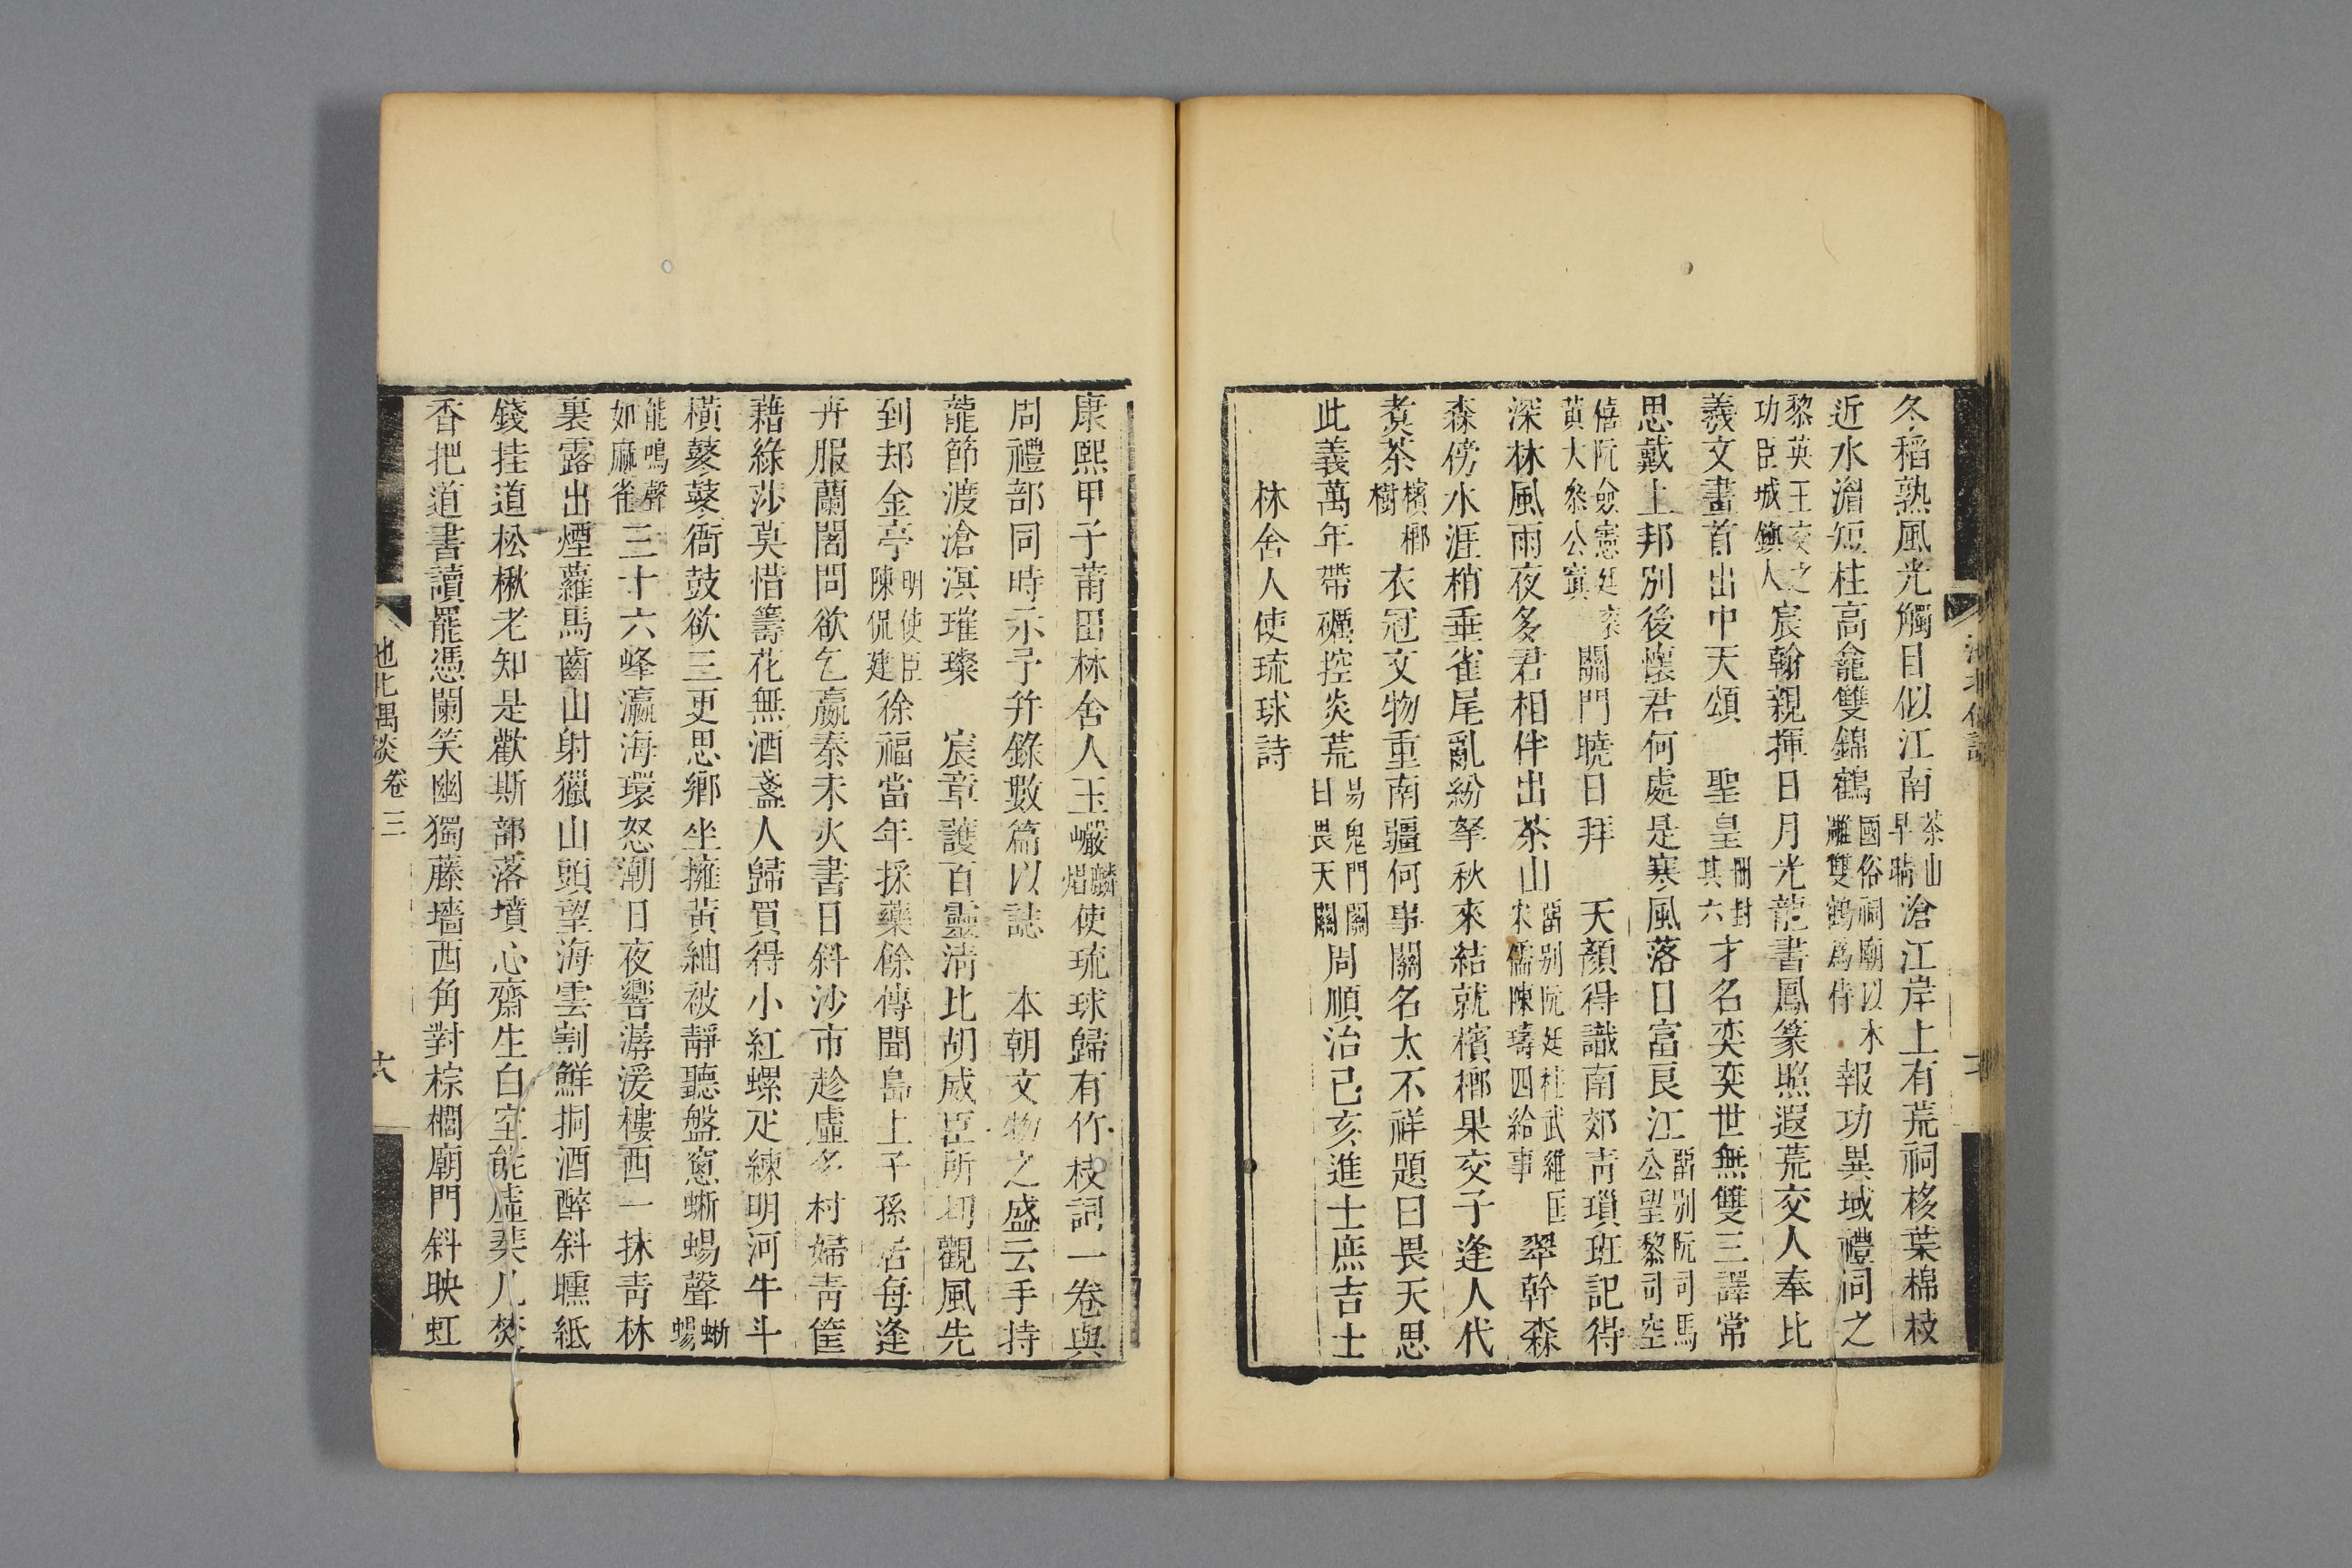 冬稻熟風光觸目似江南茶山早晴滄江岸上有荒祠桫葉棉枝
近水湄短柱高龕雙錦鶴國俗祠廟以木雕雙鶴爲侍報功異域禮同之
黎英王交之功臣城鎮人宸翰親揮日月光龍書鳳篆照遐荒交人奉比
羲文畫首出中天頌 聖皇冊封其六才名奕奕世無雙三譯常
思戴上邦別後懷君何處是寒風落日富良江留別阮司馬公望黎司空
僖阮僉憲廷袞黃大參公寘關門曉日拜 天顏得識南郊靑瑣班記得
深林風雨夜多君相伴出茶山留别阮廷柱武維匡宋儒陳璹四給事翠幹森
森傍水涯梢垂雀尾亂紛拏秋來結就檳榔果交子逢人代
煑茶檳榔樹衣冠文物重南疆何事關名太不祥題曰畏天思
此義萬年帶礪控炎荒易鬼門關曰畏天關周順治己亥進士庶吉士
林舍人使琉球詩
康熙甲子莆田林舍人玉巖麟焻使琉球歸有竹枝詞一卷與
周禮部同時示予幷錄數篇以誌 本朝文物之盛云手持
龍節渡滄溟璀璨 宸章護百靈淸比胡威臣所切觀風先
到却金亭明使臣陳侃建徐福當年採藥餘傳聞島上子孫居每逢
卉服蘭闍問欲乞嬴秦未火書日斜沙市趁虛多村婦靑筐
藉綠莎莫惜籌花無酒盞人歸買得小紅螺疋練明河牛斗
橫鼕鼕衙鼓欲三更思鄉坐擁黃紬被靜聽盤窻蜥蜴聲蜥蜴
能鳴聲如麻雀三十六峰瀛海環怒潮日夜響潺湲樓西一抹靑林
裏露出煙蘿馬齒山射獵山頭望海雲割鮮挏酒醉斜曛紙
錢挂道松楸老知是歡斯部落墳心齋生白室能虛棐几焚
香把道書讀罷憑闌笑幽獨藤墻西角對棕櫚廟門斜映虹
池北偶談 卷三 六